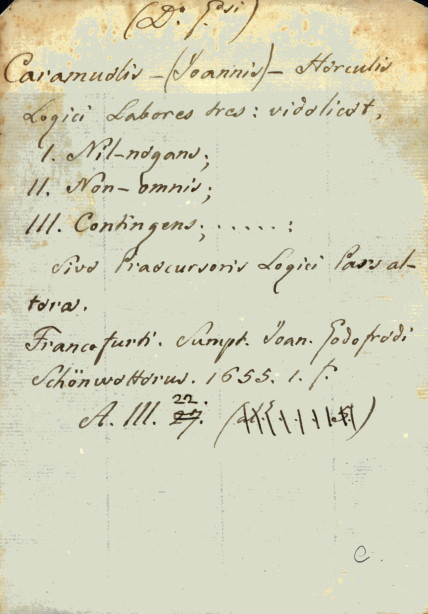 (Ds. Psi)
Caramuelis - (Joannis) - Herculis
Logici Labores tres: videlicet,
I. Nil-negans;
II. Non-omnis;
III. Contingens; . . . . . :
Sive Praecursoris Logici Pars al-
tera.
Francofurti. Sumpt. Joan. Godofredi
Schönwetterus. 1655. 1. f.
A. III. 22.
C